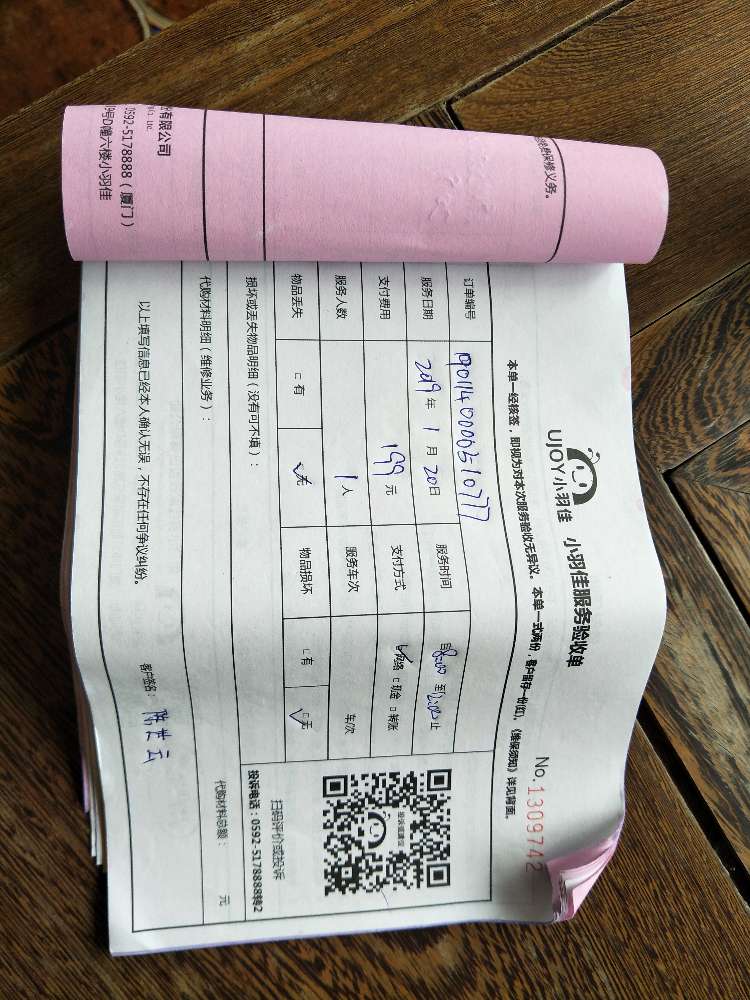 份有限公司
Co., Ltd.
0592-5178888（厦门）
9号D幢六楼小羽佳
免费保修义务。
UJOY小羽佳 小羽佳服务验收单
No.1309742
本单一经核签，即视为对本次服务验收无异议。本单一式两份，客户留存一份(红)，《维保须知》详见背面。
订单编号 19011400006510777
服务日期 2019 年 1 月 20 日 服务时间 自8:00 至12:00止
支付费用 199 元 支付方式 ☑网络 □现金 □转账
服务人数 1 人 服务车次 车次
物品丢失 □有 ☑无 物品损坏 □有 ☑无
损坏或丢失物品明细（没有可不填）：
代购材料明细（维修业务）：
代购材料总额： 元
以上填写信息已经本人确认无误，不存在任何争议纠纷。
客户签名：
投诉或建议
扫码评价或投诉
投诉电话：0592-5178888转2